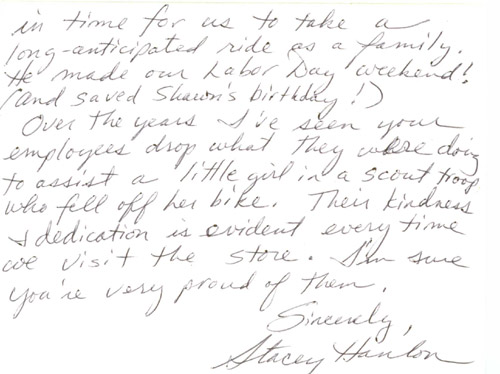 in time for us to take a
long-anticipated ride as a family.
He made our Labor Day weekend!
(and saved Shawn's birthday!)
Over the years I've seen your
employees drop what they were doing
to assist a little girl in a scout troop
who fell off her bike. Their kindness
& dedication is evident every time
we visit the store. I'm sure
you're very proud of them.
Sincerely,
Stacey Hanlon